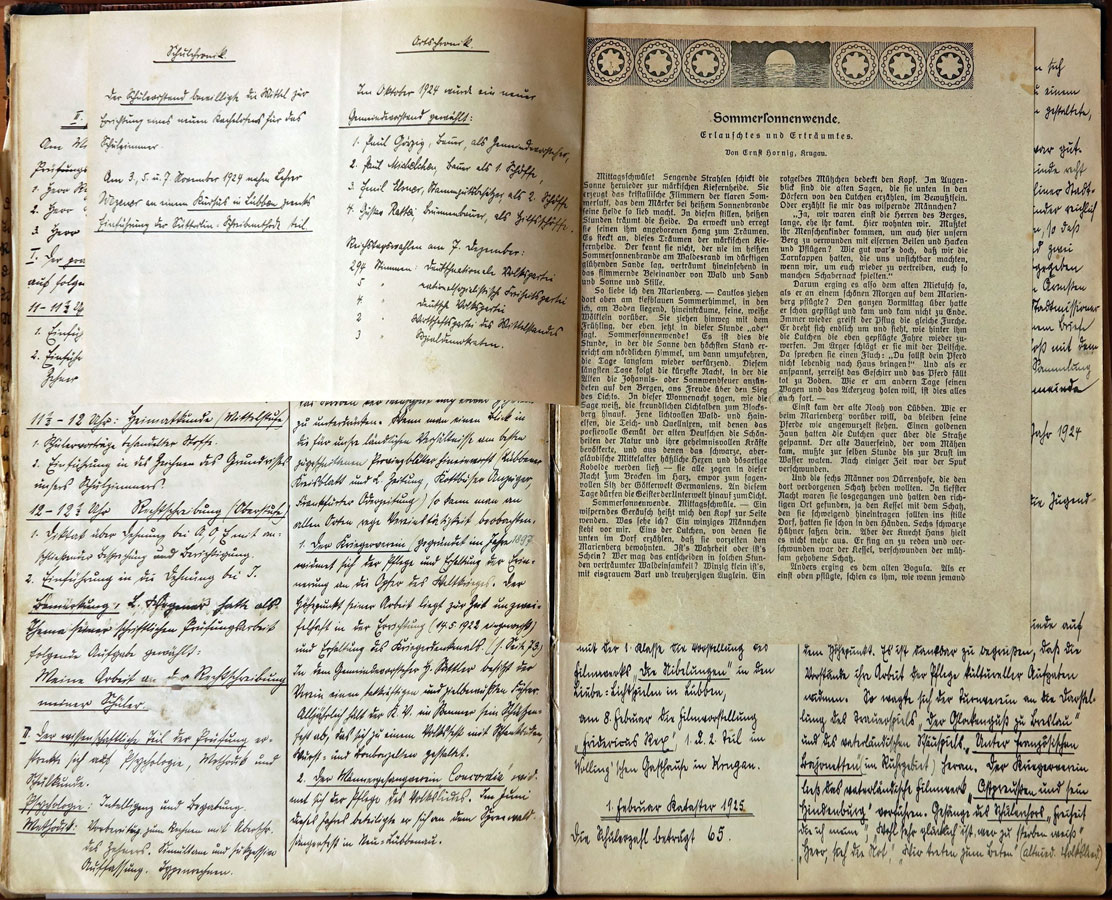 Schulchronik.
Der Schulvorstand bewilligte die Mittel zur
Errichtung eines neuen Kachelofens für das
Schulzimmer.
Am 3., 5. u. 7. November 1924 nahm Lehrer
Wegener an einem Kursus in Lübben zwecks
Einführung der Sütterlin-Schreibmethode teil.
Ortschronik.
Im Oktober 1924 wurde ein neuer
Gemeindevorstand gewählt:
1. Paul Görzig, Bauer, als Gemeindevorsteher,
2. Karl Bauer als 1. Schöffe,
3. Emil als 2. Schöffe,
4. Gustav als Hilfsschöffe.
Reichstagswahlen am 7. Dezember:
294 Stimmen: Deutschnationale Volkspartei
5 " nationalsozialistische Freiheitspartei
4 " Deutsche Volkspartei
2 " Wirtschaftspartei des Mittelstandes
3 " Sozialdemokraten.
II.
Am
Prüfungs
1. Herr
2. Herr
3. Herr
I. Der
auf folge
11 - 11½
1. Einfüh
2. Einfüh
11½ - 12 Uhr: Heimatkunde (Mittelstufe)
1. Schülervorträge behandelter Stoffe.
2. Einführung in das Zeichnen des Grundrisses
unsers Schulzimmers.
12 - 12½ Uhr Rechtschreibung (Oberstufe)
1. Diktat über Dehnung bei mit an-
schließender Besprechung und Berichtigung.
2. Einführung in die Dehnung bei J.
Bemerkung: L. Wegener hatte als
Thema seiner schriftlichen Prüfungsarbeit
folgende Aufgabe gewählt:
Meine Arbeit an der Rechtschreibung
meiner Schüler.
II. Der wissenschaftliche Teil der Prüfung er-
streckte sich auf Psychologie, Methodik und
Schulkunde.
Psychologie: Intelligenz und Begabung.
Methodik: Vorbereitung zum Rechnen mit Überschr.
des Zehners. Simultane und sukzessive
Auffassung.
zu unterdrücken. Wenn man einen Blick in
die für unsre ländlichen Verhältnisse am besten
zugeschnittenen Provinzblätter hineinwirft (Lübbener
Kreisblatt und L. Zeitung, Kottbuser Anzeiger,
Frankfurter Oderzeitung) so kann man an
allen Orten rege Vereinstätigkeit beobachten.
1. Der Kriegerverein gegründet im Jahre 1897
widmet sich der Pflege und Erhaltung der Erin-
nerung an die Opfer des Weltkrieges. Der
Höhepunkt seiner Arbeit liegt zur Zeit unzwei-
felhaft in der Errichtung (14.5 1923 eingeweiht)
und Erhaltung des Kriegerdenkmals (s. Seite 73)
In dem Gemeindevorsteher G. besitzt der
Verein einen tatkräftigen und zielbewußten Führer.
Alljährlich hält der K. V. im Sommer sein Schützen-
fest ab, das sich zu einem Volksfest mit
Würfel- und gestaltet.
2. Der Männergesangverein „Concordia" wid-
met sich der Pflege des Volksliedes. Im Juni
dieses Jahres beteiligte er sich an dem Spreewald-
sängerfest in Neu-Lübbenau.
Sommersonnenwende.
Erlauschtes und Erträumtes.
Von Ernst Hornig, Krugau.
Mittagsschwüle! Sengende Strahlen schickt die
Sonne hernieder zur märkischen Kiefernheide. Sie
erzeugt das kristallische Flimmern der klaren Som-
merluft, das dem Märker bei heißem Sonnenbrande
seine Heide so lieb macht. In diesen stillen, heißen
Stunden träumt die Heide. Da erweckt und erregt
sie seinen ihm angeborenen Hang zum Träumen.
Es steckt an, dieses Träumen der märkischen Kie-
fernheide. Der kennt sie nicht, der nie im heißen
Sommersonnenbrande am Waldesrand im märkischen
glühenden Sande lag, verträumt hineinsehend in
das flimmernde Beieinander von Wald und Sand
und Sonne und Stille.
So liebe ich den Marienberg. — Lautlos ziehen
dort oben am tiefblauen Sommerhimmel, in den
ich, am Boden liegend, hineinträume, feine, weiße
Wölklein vorüber. Sie ziehen hinweg mit dem
Frühling, der eben jetzt in dieser Stunde „ade"
sagt. Sommersonnenwende! Es ist dies die
Stunde, in der die Sonne den höchsten Stand er-
reicht am nördlichen Himmel, um dann umzukehren,
die Tage langsam wieder verkürzend. Diesem
längsten Tage folgt die kürzeste Nacht, in der die
Alten die Johannis- oder Sonnwendfeuer anzün-
deten auf den Bergen, aus Freude über den Sieg
des Lichts. In dieser Wonnenacht zogen, wie die
Sage weiß, die freundlichen Lichtalben zum Blocks-
berg hinauf. Jene lichtvollen Wald- und Wiesen-
elfen, die Teich- und Quellnixen, mit denen das
poesievolle Gemüt der alten Deutschen die Schön-
heiten der Natur und ihre geheimnisvollen Kräfte
bevölkerte, und aus denen das schwarze, aber-
gläubische Mittelalter häßliche Hexen und bösartige
Kobolde werden ließ — sie alle zogen in dieser
Nacht zum Brocken im Harz, empor zum sagen-
vollen Sitz der Götterwelt Germaniens. An diesem
Tage dürfen die Geister der Unterwelt hinauf zum Licht.
Sommersonnenwende. Mittagsschwüle. — Ein
wisperndes Geräusch heißt mich den Kopf zur Seite
wenden. Was sehe ich? Ein winziges Männchen
steht vor mir. Eins der Lutchen, von denen sie
unten im Dorf erzählen, daß sie vorzeiten den
Marienberg bewohnten. Ist's Wahrheit oder ist's
Schein? Wer mag das entscheiden in solchen Stun-
den verträumter Waldeinsamkeit? Winzig klein ist's,
mit eisgrauem Bart und treuherzigen Äuglein. Ein
rotgelbes Mützchen bedeckt den Kopf. Im Augen-
blick sind die alten Sagen, die sie unten in den
Dörfern erzählen von den Lutchen, im
Oder erzählt sie mir das wispernde Männchen?
„Ja, wir waren einst die Herren des Berges,
lange, ehe ihr kamt. Hier wohnten wir. Mußtet
ihr Menschenkinder kommen, um auch hier unsern
Berg zu verwunden mit eisernen Beilen und Hacken
und Pflügen? Wie gut war's doch, daß wir die
Tarnkappen hatten, die uns unsichtbar machten,
wenn wir, um euch wieder zu vertreiben, euch so
manchen Schabernack spielten."
Darum erging es also dem alten Mietusch so,
als er an einem schönen Morgen auf dem Marien-
berg pflügte? Den ganzen Vormittag über hatte
er schon gepflügt und kam und kam nicht zu Ende.
Immer wieder greift der Pflug die gleiche Furche.
Er dreht sich endlich um und sieht, wie hinter ihm
die Lutchen die eben gepflügte Fahre wieder zu-
werfen. Im Ärger schlägt er sie mit der Peitsche.
Da sprechen sie einen Fluch: „Du sollst dein Pferd
nicht lebendig nach Haus bringen!" Und als er
anspannt, zerreißt das Geschirr und das Pferd fällt
tot zu Boden. Wie er am andern Tage seinen
Wagen und das Ackerzeug holen will, ist dies alles
auch fort. —
Einst kam der alte Noah von Lübben. Wie er
beim Marienberg vorüber will, da bleiben seine
Pferde wie angewurzelt stehen. Einen goldenen
Zaun halten die Lutchen quer über die Straße
gespannt. Der alte Bauersfeind, der vom Mähen
kam, mußte zur selben Stunde bis zur Brust im
Wasser waten. Nach einiger Zeit war der Spuk
verschwunden.
Und die sechs Männer von Dürrenhofe, die den
dort verborgenen Schatz heben wollten. In tiefster
Nacht waren sie losgegangen und hatten den rich-
tigen Ort gefunden, ja den Kessel mit dem Schatz,
den sie schweigend heimtragen sollten in stille
Dorf, hatten sie schon in den Händen. Sechs schwarze
Hühner saßen dabei. Aber der Knecht Hans hielt
es nicht mehr aus. Er fing an zu reden und ver-
schwunden war der Kessel, verschwunden der müh-
sam gehobene Schatz.
Anders erging es dem alten Bogula. Als er
einst oben pflügte, schien es ihm, wie wenn jemand
mit der 1. Klasse die Vorstellung des
Filmwerks „Die Nibelungen" in den
Liebe-Lichtspielen in Lübben,
am 8. Februar die Filmvorstellung
„Fridericus Rex", 1. u. 2. Teil im
'schen Gasthause in Krugau.
1. Februar Kataster 1925
Die Schülerzahl beträgt 65.
inde auf
dem Höhepunkt. Es ist dankbar zu begrüßen, daß die
Vorstände ihre Arbeit der Pflege kultureller Aufgaben
widmen. So wagte sich der Turnverein an die Darstel-
lung des Trauerspiels „Der Glockenguß zu Breslau"
und des vaterländischen Schauspiels „Unter französischen
Bajonetten (im Ruhrgebiet) heran. Der Kriegerverein
ließ das vaterländische Filmwerk „Ostpreußen und sein
Hindenburg" vorführen. Gesänge des Schülerchors „Freiheit
die ich meine" „Wohl sehr glücklich ist, wer zu sterben weiß"
„Herr, sieh die Not" „Wir treten zum Beten" (altnied. Volkslied)
n sich
einem
gestaltete,
war gut.
Stadt-
reichlich
so daß
zwei
Ärmsten
Stadtmissionar
Brief
mit dem
Sammlung
meinde
Jahr 1924
die Jugend-